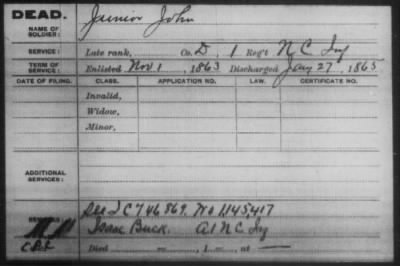 DEAD.
NAME OF SOLDIER: Junior John
SERVICE: Late rank, Co. D, 1 Reg't N C Inf
TERM OF SERVICE: Enlisted Nov 1, 1863 Discharged Jany 27, 1865
DATE OF FILING. CLASS. APPLICATION NO. LAW. CERTIFICATE NO.
Invalid,
Widow,
Minor,
ADDITIONAL SERVICES:
See I C 746,869. No 1145,417
Isaac Buck. A 1 N C Inf
Died — , 1 — , at —